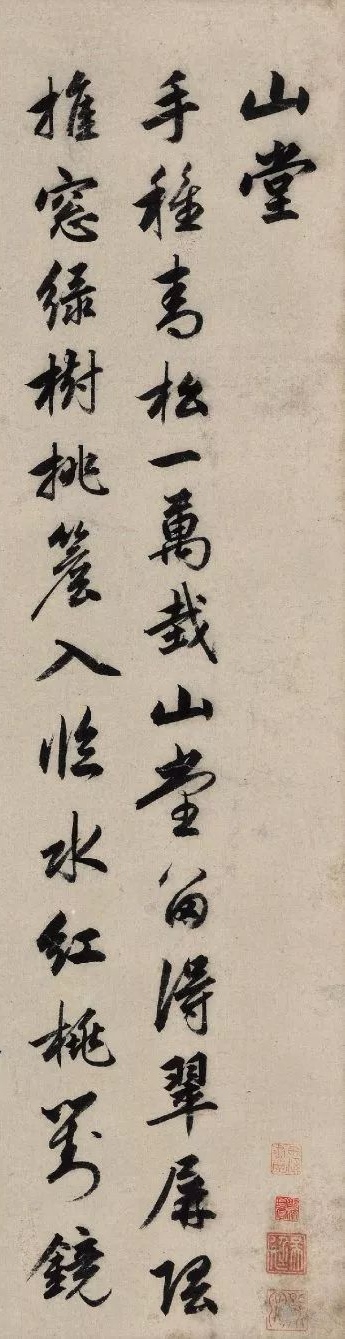 山堂
手種青松一萬栽山堂留得翠屏隈
推窓緑樹挑簷入臨水紅桃對鏡